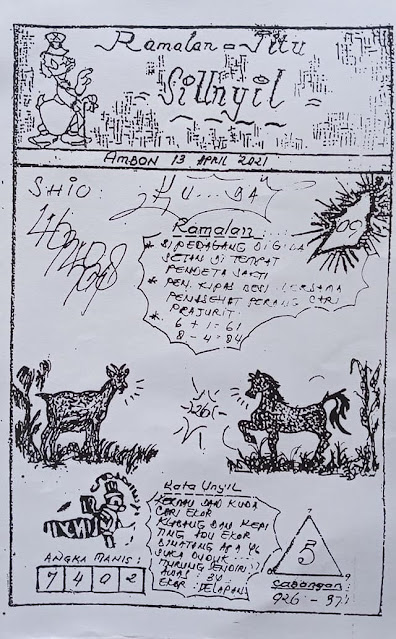 Ramalan = Jitu
SiUnyil
AMBON 13 APRIL 2021
SHIO:
U...BA
30
Ramalan :....
* SI PEDAGANG DIGODA
SETAN DI TEMPAT
PENDETA SAKTI
* PEN. KIPAS BESI BERSAMA
PENASEHAT PERANG CARI
PRAJURIT.
* 6 + 1 = 61
8 - 4 = 84
26
Kata Unyil
DAN KUDA
CARI EKOR
KLABANG DAN KEPI
TING ADU EKOR
BINATANG APA YG
SUKA DUDUK
MURUNG SENDIRI
AWAS : 34
EKOR : DELAPAN
ANGKA MANIS:
7 4 0 2
5
9
Cabangan:
926 - 97